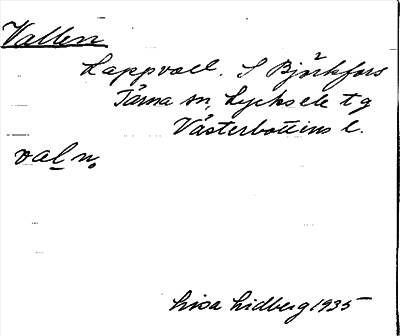 Vallen
Lappvall. S Björkfors
Tärna sn, Lycksele tg
Västerbottens l.
val n.
Lisa Lidberg 1935